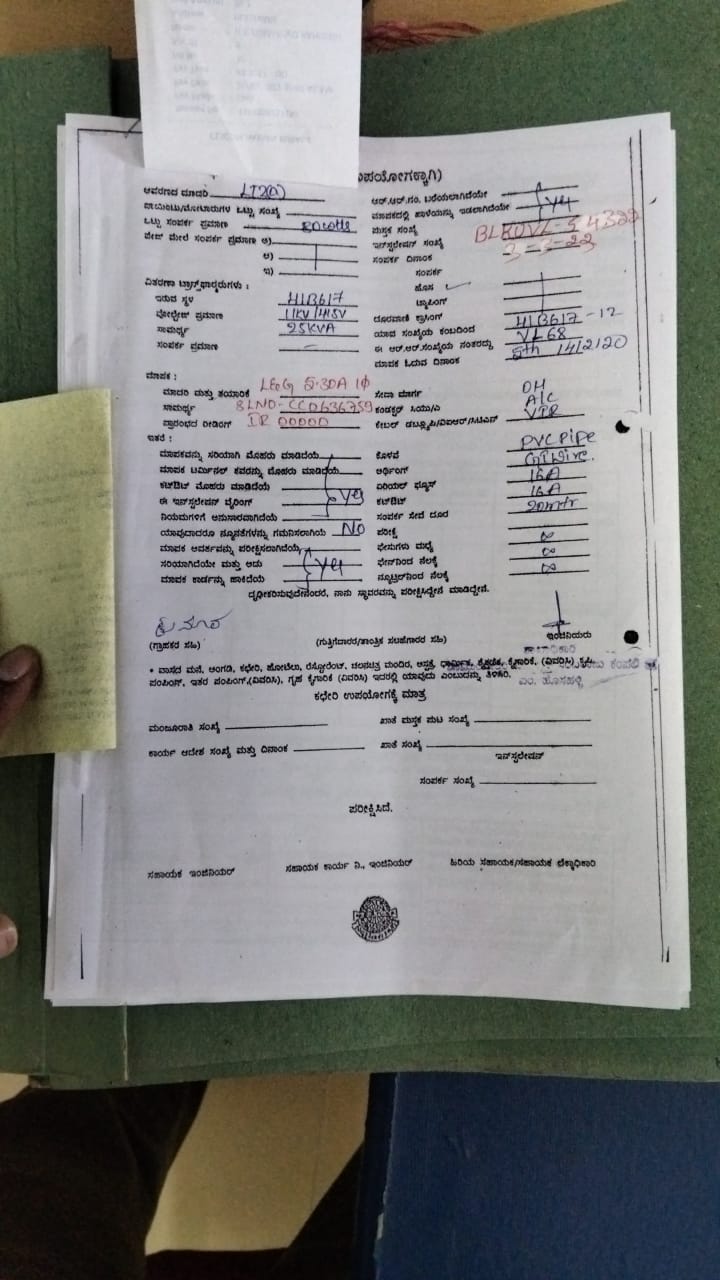 ಉಪಯೋಗಕ್ಕಾಗಿ)
ಆವರಣದ ಮಾದರಿ LT2(a) ಆರ್.ಆರ್.ನಂ. ಬರೆಯಲಾಗಿದೆಯೇ
ಒಟ್ಟು ಸಂಖ್ಯೆ ಮಾಪಕದಲ್ಲಿ ಹಾಳೆಯನ್ನು ಇಡಲಾಗಿದೆಯೇ Yes
ಒಟ್ಟು ಸಂಪರ್ಕ ಪ್ರಮಾಣ 80watts ಪುಸ್ತಕ ಸಂಖ್ಯೆ
ಮೇಲೆ ಸಂಪರ್ಕ ಪ್ರಮಾಣ ಅ) ಇನ್‌ಸ್ಟಲೇಷನ್ ಸಂಖ್ಯೆ
ಆ) ಸಂಪರ್ಕ ದಿನಾಂಕ 3-3-22
ಇ) ಸಂಪರ್ಕ
ವಿತರಣಾ ಟ್ರಾನ್ಸ್‌ಫಾರ್ಮರುಗಳು : ಹೊಸ
ಇರುವ ಸ್ಥಳ HLB617 ಟ್ಯಾಪಿಂಗ್
ವೋಲ್ಟೇಜ್ ಪ್ರಮಾಣ 11KV/415V ದೂರವಾಣಿ ಕ್ರಾಸಿಂಗ್
ಸಾಮರ್ಥ್ಯ 25KVA ಯಾವ ಸಂಖ್ಯೆಯ ಕಂಬದಿಂದ HLB617-12
ಸಂಪರ್ಕ ಪ್ರಮಾಣ — ಈ ಆರ್.ಆರ್.ಸಂಖ್ಯೆಯ ನಂತರದ್ದು VL68
ಮಾಪಕ ಓದುವ ದಿನಾಂಕ 5th 14/2/20
ಮಾಪಕ :
ಮಾದರಿ ಮತ್ತು ತಯಾರಿಕೆ L&G 5-30A 1Φ ಸೇವಾ ಮಾರ್ಗ OH
ಸಾಮರ್ಥ್ಯ SLNO-CC0636759 ಕಂಡಕ್ಟರ್ ಸಿಯು/ಎ A/C
ಪ್ರಾರಂಭದ ರೀಡಿಂಗ್ IR 00000 ಕೇಬಲ್ VIR
ಇತರೆ :
ಮಾಪಕವನ್ನು ಸರಿಯಾಗಿ ಮೊಹರು ಮಾಡಿದೆಯೆ ಕೊಳವೆ PVC Pipe
ಮಾಪಕ ಟರ್ಮಿನಲ್ ಕವರನ್ನು ಮೊಹರು ಮಾಡಿದೆಯೆ ಅರ್ಥಿಂಗ್ GI Wire.
ಕಟ್‌ಔಟ್ ಮೊಹರು ಮಾಡಿದೆಯೆ ಏರಿಯಲ್ ಫ್ಯೂಸ್ 16A
ಈ ಇನ್‌ಸ್ಟಲೇಷನ್ ವೈರಿಂಗ್ Yes ಕಟ್‌ಔಟ್ 16A
ನಿಯಮಗಳಿಗೆ ಅನುಸಾರವಾಗಿದೆಯೆ ಸಂಪರ್ಕ ಸೇವೆ ದೂರ 20mtr
ಯಾವುದಾದರೂ ನ್ಯೂನತೆಗಳನ್ನು ಗಮನಿಸಲಾಗಿಯೆ No ಪರೀಕ್ಷೆ
ಮಾಪಕ ಆವರ್ತವನ್ನು ಪರೀಕ್ಷಿಸಲಾಗಿದೆಯೆ ಫೇಸುಗಳು ಮಧ್ಯೆ ∞
ಸರಿಯಾಗಿದೆಯೇ ಮತ್ತು ಅದು Yes ಫೇಸ್‌ನಿಂದ ನೆಲಕ್ಕೆ ∞
ಮಾಪಕ ಕಾರ್ಡನ್ನು ಹಾಕಿದೆಯೆ ನ್ಯೂಟ್ರಲ್‌ನಿಂದ ನೆಲಕ್ಕೆ ∞
ದೃಢೀಕರಿಸುವುದೇನೆಂದರೆ, ನಾನು ಸ್ಥಾವರವನ್ನು ಪರೀಕ್ಷಿಸಿದ್ದೇನೆ ಮಾಡಿದ್ದೇನೆ.
(ಗ್ರಾಹಕರ ಸಹಿ) (ಗುತ್ತಿಗೆದಾರರ/ತಾಂತ್ರಿಕ ಸಲಹೆಗಾರರ ಸಹಿ) ಇಂಜಿನಿಯರು
* ವಾಸದ ಮನೆ, ಅಂಗಡಿ, ಕಛೇರಿ, ಹೋಟೆಲು, ರೆಸ್ಟೋರೆಂಟ್, ಚಲನಚಿತ್ರ ಮಂದಿರ, ಆಸ್ಪತ್ರೆ, ಧಾರ್ಮಿಕ, ಶೈಕ್ಷಣಿಕ, ಕೈಗಾರಿಕೆ, (ವಿವರಿಸಿ)
ಪಂಪಿಂಗ್, ಇತರ ಪಂಪಿಂಗ್,(ವಿವರಿಸಿ), ಗೃಹ ಕೈಗಾರಿಕೆ (ವಿವರಿಸಿ) ಇದರಲ್ಲಿ ಯಾವುದು ಎಂಬುದನ್ನು ತಿಳಿಸಿರಿ.
ಎಂ. ಹೊಸಹಳ್ಳಿ
ಕಛೇರಿ ಉಪಯೋಗಕ್ಕೆ ಮಾತ್ರ
ಮಂಜೂರಾತಿ ಸಂಖ್ಯೆ ಖಾತೆ ಪುಸ್ತಕ ಪುಟ ಸಂಖ್ಯೆ
ಕಾರ್ಯ ಆದೇಶ ಸಂಖ್ಯೆ ಮತ್ತು ದಿನಾಂಕ ಖಾತೆ ಸಂಖ್ಯೆ
ಇನ್‌ಸ್ಟಲೇಷನ್
ಸಂಪರ್ಕ ಸಂಖ್ಯೆ
ಪರೀಕ್ಷಿಸಿದೆ.
ಸಹಾಯಕ ಇಂಜಿನಿಯರ್ ಸಹಾಯಕ ಕಾರ್ಯ ನಿ., ಇಂಜಿನಿಯರ್ ಹಿರಿಯ ಸಹಾಯಕ/ಸಹಾಯಕ ಲೆಕ್ಕಾಧಿಕಾರಿ